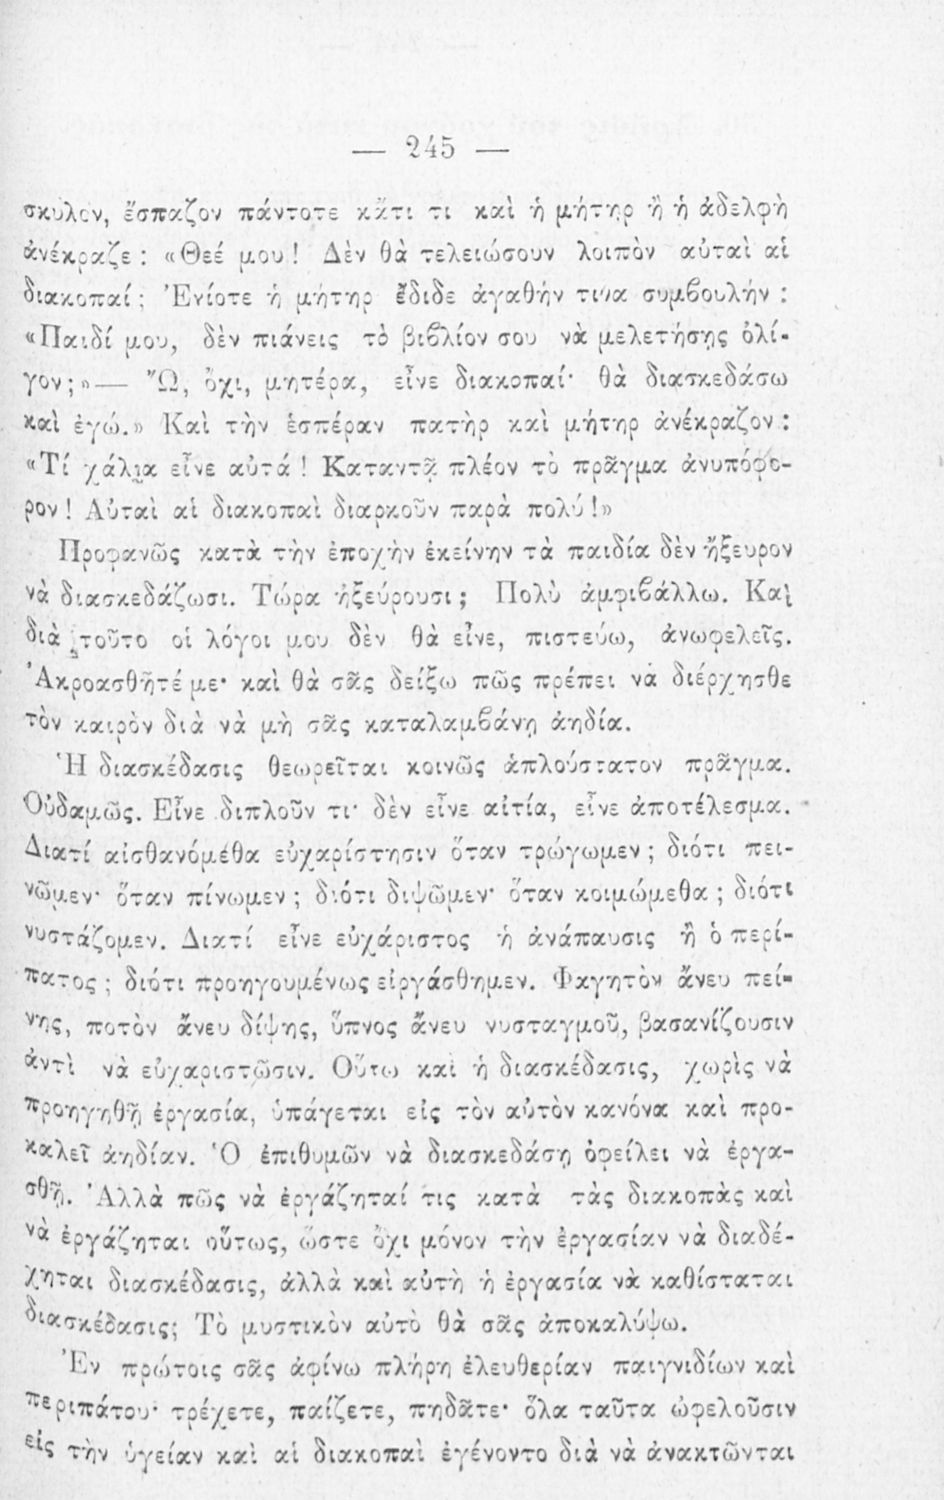 — 245 —
σκύλον, ἔσπαζον πάντοτε κἄτι τι καὶ ἡ μήτηρ ἢ ἡ ἀδελφὴ
ἀνέκραζε : «Θεέ μου ! Δὲν θὰ τελειώσουν λοιπὸν αὐταὶ αἱ
διακοπαί ; Ἐνίοτε ἡ μήτηρ ἔδιδε ἀγαθήν τινα συμβουλήν :
«Παιδί μου, δὲν πιάνεις τὸ βιβλίον σου νὰ μελετήσῃς ὀλί-
γον ; » — Ὤ, ὄχι, μητέρα, εἶνε διακοπαί· θὰ διασκεδάσω
καὶ ἐγώ.» Καὶ τὴν ἑσπέραν πατὴρ καὶ μήτηρ ἀνέκραζον :
«Τί χάλια εἶνε αὐτά ! Καταντᾷ πλέον τὸ πρᾶγμα ἀνυπόφο-
ρον ! Αὐταὶ αἱ διακοπαὶ διαρκοῦν παρὰ πολύ !»
Προφανῶς κατὰ τὴν ἐποχὴν ἐκείνην τὰ παιδία δὲν ἤξευρον
νὰ διασκεδάζωσι. Τώρα ἠξεύρουσι ; Πολὺ ἀμφιβάλλω. Καὶ
διὰ τοῦτο οἱ λόγοι μου δὲν θὰ εἶνε, πιστεύω, ἀνωφελεῖς.
Ἀκροασθῆτέ με· καὶ θὰ σᾶς δείξω πῶς πρέπει νὰ διέρχησθε
τὸν καιρὸν διὰ νὰ μὴ σᾶς καταλαμβάνῃ ἀηδία.
Ἡ διασκέδασις θεωρεῖται κοινῶς ἁπλούστατον πρᾶγμα.
Οὐδαμῶς. Εἶνε διπλοῦν τι· δὲν εἶνε αἰτία, εἶνε ἀποτέλεσμα.
Διατί αἰσθανόμεθα εὐχαρίστησιν ὅταν τρώγωμεν ; διότι πει-
νῶμεν· ὅταν πίνωμεν ; διότι διψῶμεν· ὅταν κοιμώμεθα ; διότι
νυστάζομεν. Διατί εἶνε εὐχάριστος ἡ ἀνάπαυσις ἢ ὁ περί-
πατος ; διότι προηγουμένως εἰργάσθημεν. Φαγητὸν ἄνευ πεί-
νης, ποτὸν ἄνευ δίψης, ὕπνος ἄνευ νυσταγμοῦ, βασανίζουσιν
ἀντὶ νὰ εὐχαριστῶσιν. Οὕτω καὶ ἡ διασκέδασις, χωρὶς νὰ
προηγηθῇ ἐργασία, ὑπάγεται εἰς τὸν αὐτὸν κανόνα καὶ προ-
καλεῖ ἀηδίαν. Ὁ ἐπιθυμῶν νὰ διασκεδάσῃ ὀφείλει νὰ ἐργα-
σθῇ. Ἀλλὰ πῶς νὰ ἐργάζηταί τις κατὰ τὰς διακοπὰς καὶ
νὰ ἐργάζηται οὕτως, ὥστε ὄχι μόνον τὴν ἐργασίαν νὰ διαδέ-
χηται διασκέδασις, ἀλλὰ καὶ αὐτὴ ἡ ἐργασία νὰ καθίσταται
διασκέδασις; Τὸ μυστικὸν αὐτὸ θὰ σᾶς ἀποκαλύψω.
Ἐν πρώτοις σᾶς ἀφίνω πλήρη ἐλευθερίαν παιγνιδίων καὶ
περιπάτου· τρέχετε, παίζετε, πηδᾶτε· ὅλα ταῦτα ὠφελοῦσιν
εἰς τὴν ὑγείαν καὶ αἱ διακοπαὶ ἐγένοντο διὰ νὰ ἀνακτῶνται